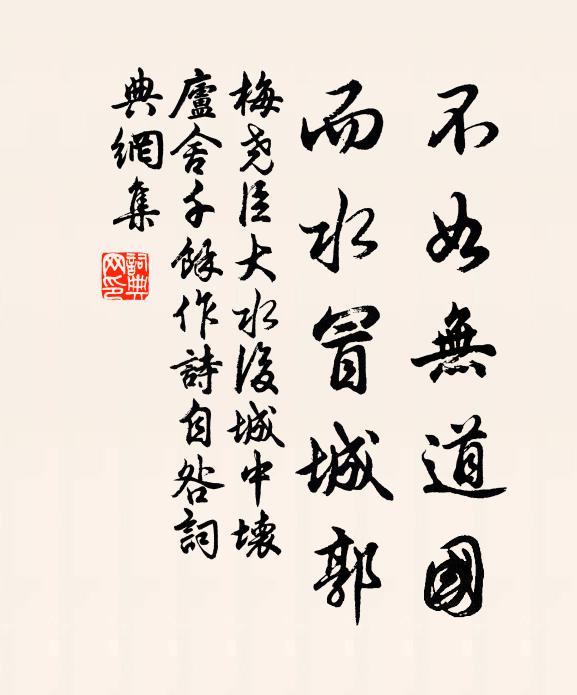 不如無道國
而水冒城郭
梅堯臣大水後城中壞
廬舍千餘作詩自咎詞
典網集
詞典
网印